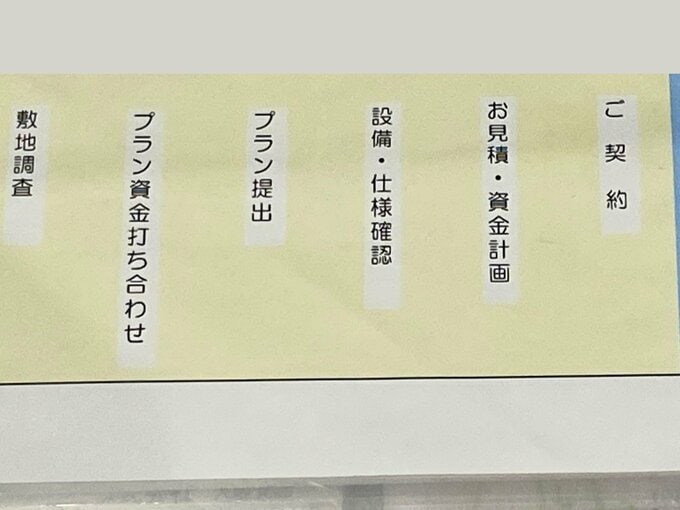 敷地調査
プラン資金打ち合わせ
プラン提出
設備・仕様確認
お見積・資金計画
ご契約